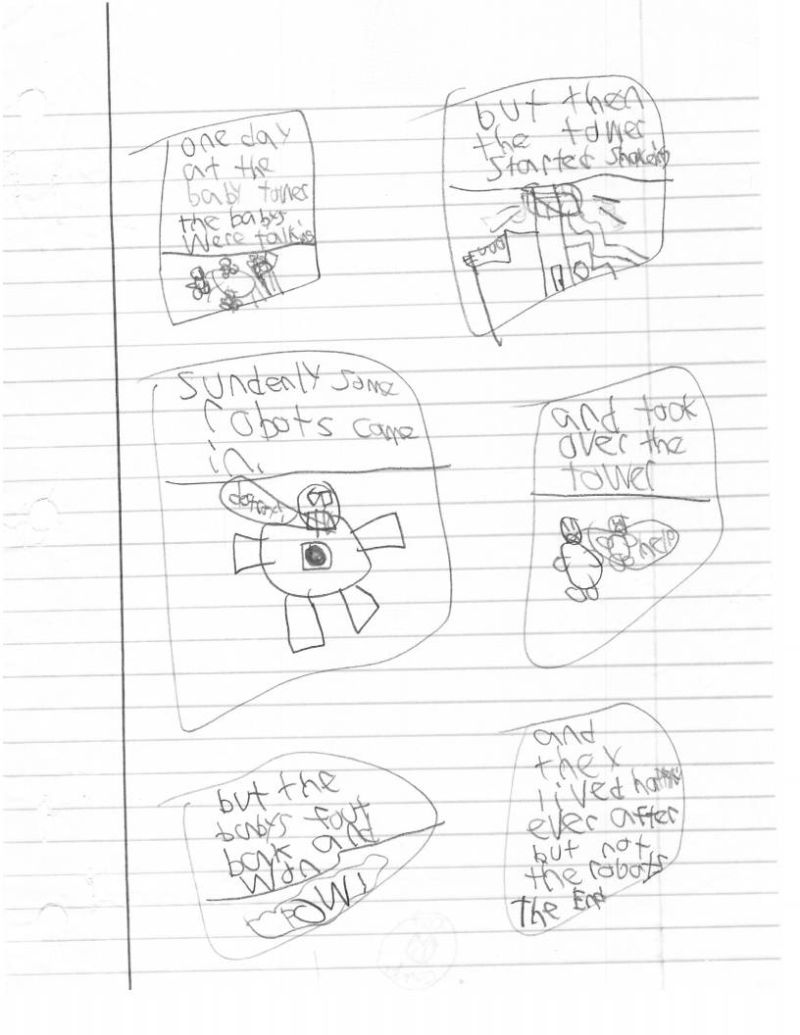 one day
at the
baby tower
the babys
were talking
but then
the tower
started shakeing
sundenly some
robots came
in.
destroy
and took
over the
tower
help
but the
babys fout
back and
won
POW!
and
they
lived happy
ever after
but not
the robots
the End